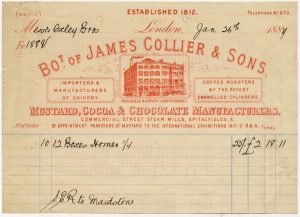 ESTABLISHED 1812.
TELEPHONE No 670.
London, Jan 26th 1889
Mess
Bros
BOT. OF JAMES COLLIER & SONS,
IMPORTERS & MANUFACTURERS OF CHICORY.
COFFEE ROASTERS BY THE PATENT ENAMELLED CYLINDERS
WHOLESALE & EXPORT CONFECTIONERS
MUSTARD, COCOA & CHOCOLATE MANUFACTURERS,
COMMERCIAL STREET STEAM MILLS, SPITALFIELDS, E.
BY APPOINTMENT, PURVEYORS OF MUSTARD TO THE INTERNATIONAL EXHIBITIONS 1871-2-3 & 4.
TERMS
10 12 Boxes Homo 1/4 £2 18 11
S.E.R. to Maidstone